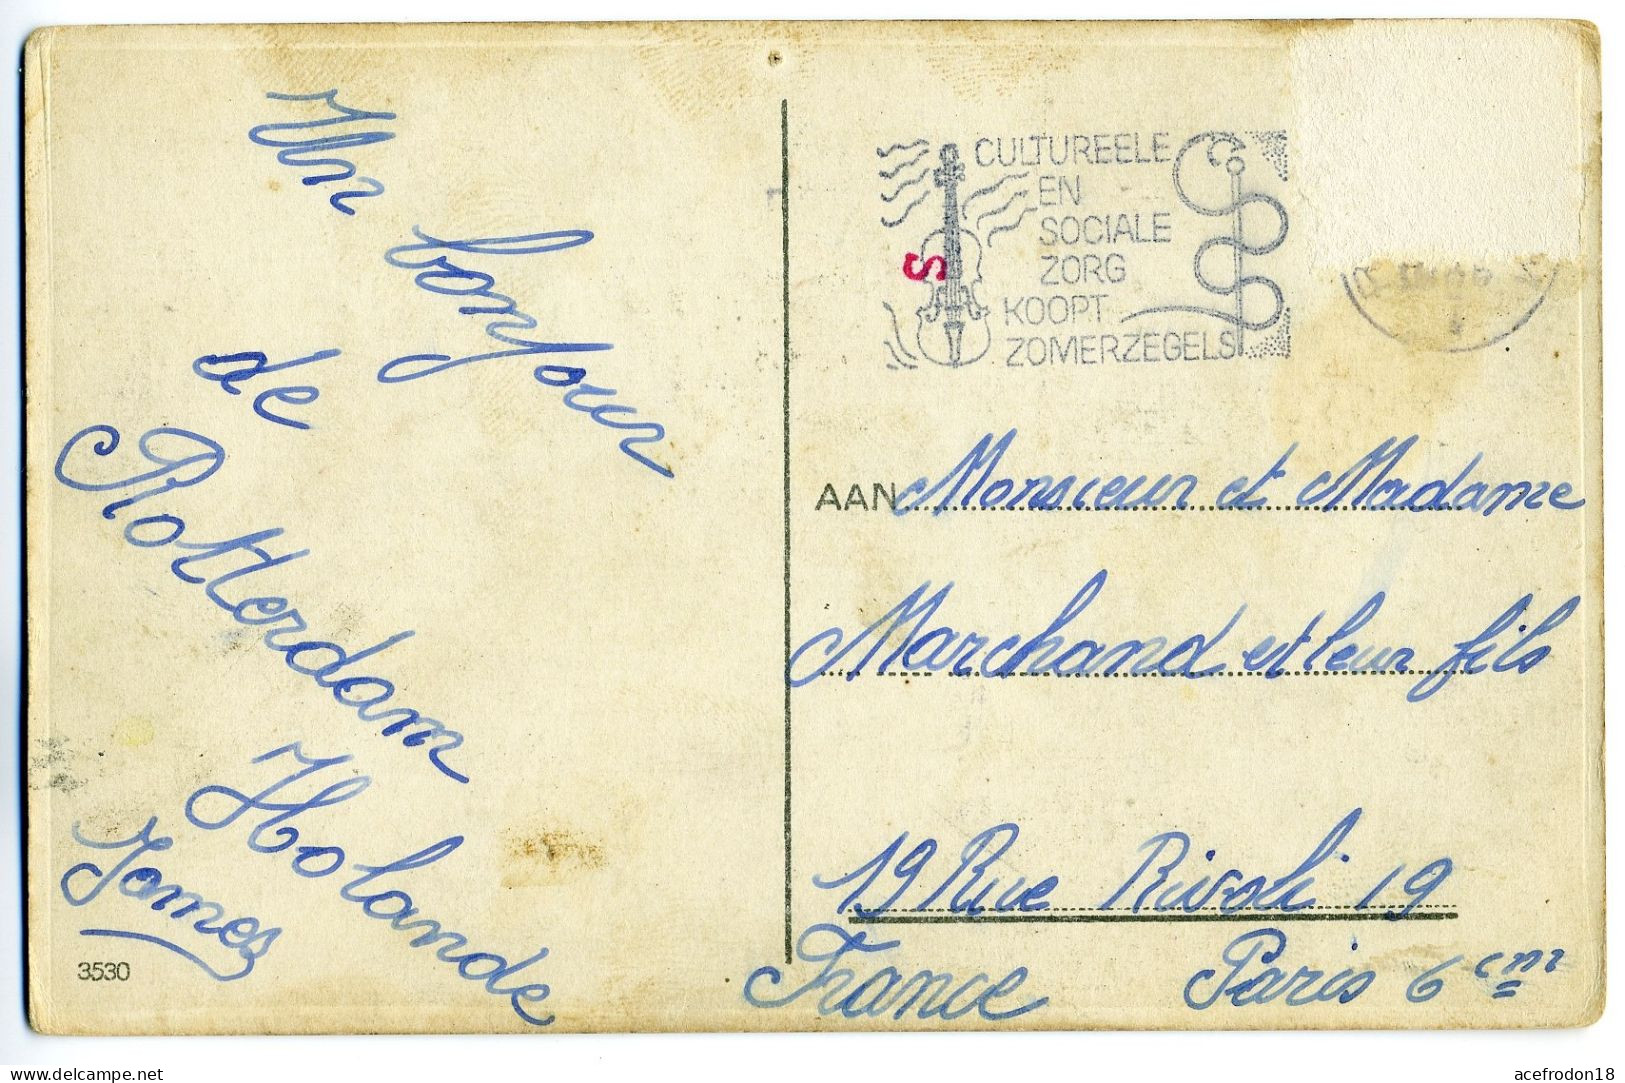 Un bonjour
de
Rotterdam
Holande
James
3530
CULTUREELE
EN
SOCIALE
ZORG
KOOPT
ZOMERZEGELS
S
AAN Monsieur et Madame
Marchand et leur fils
19 Rue Rivoli 19
France Paris 6 em
www.delcampe.net
acefrodon18